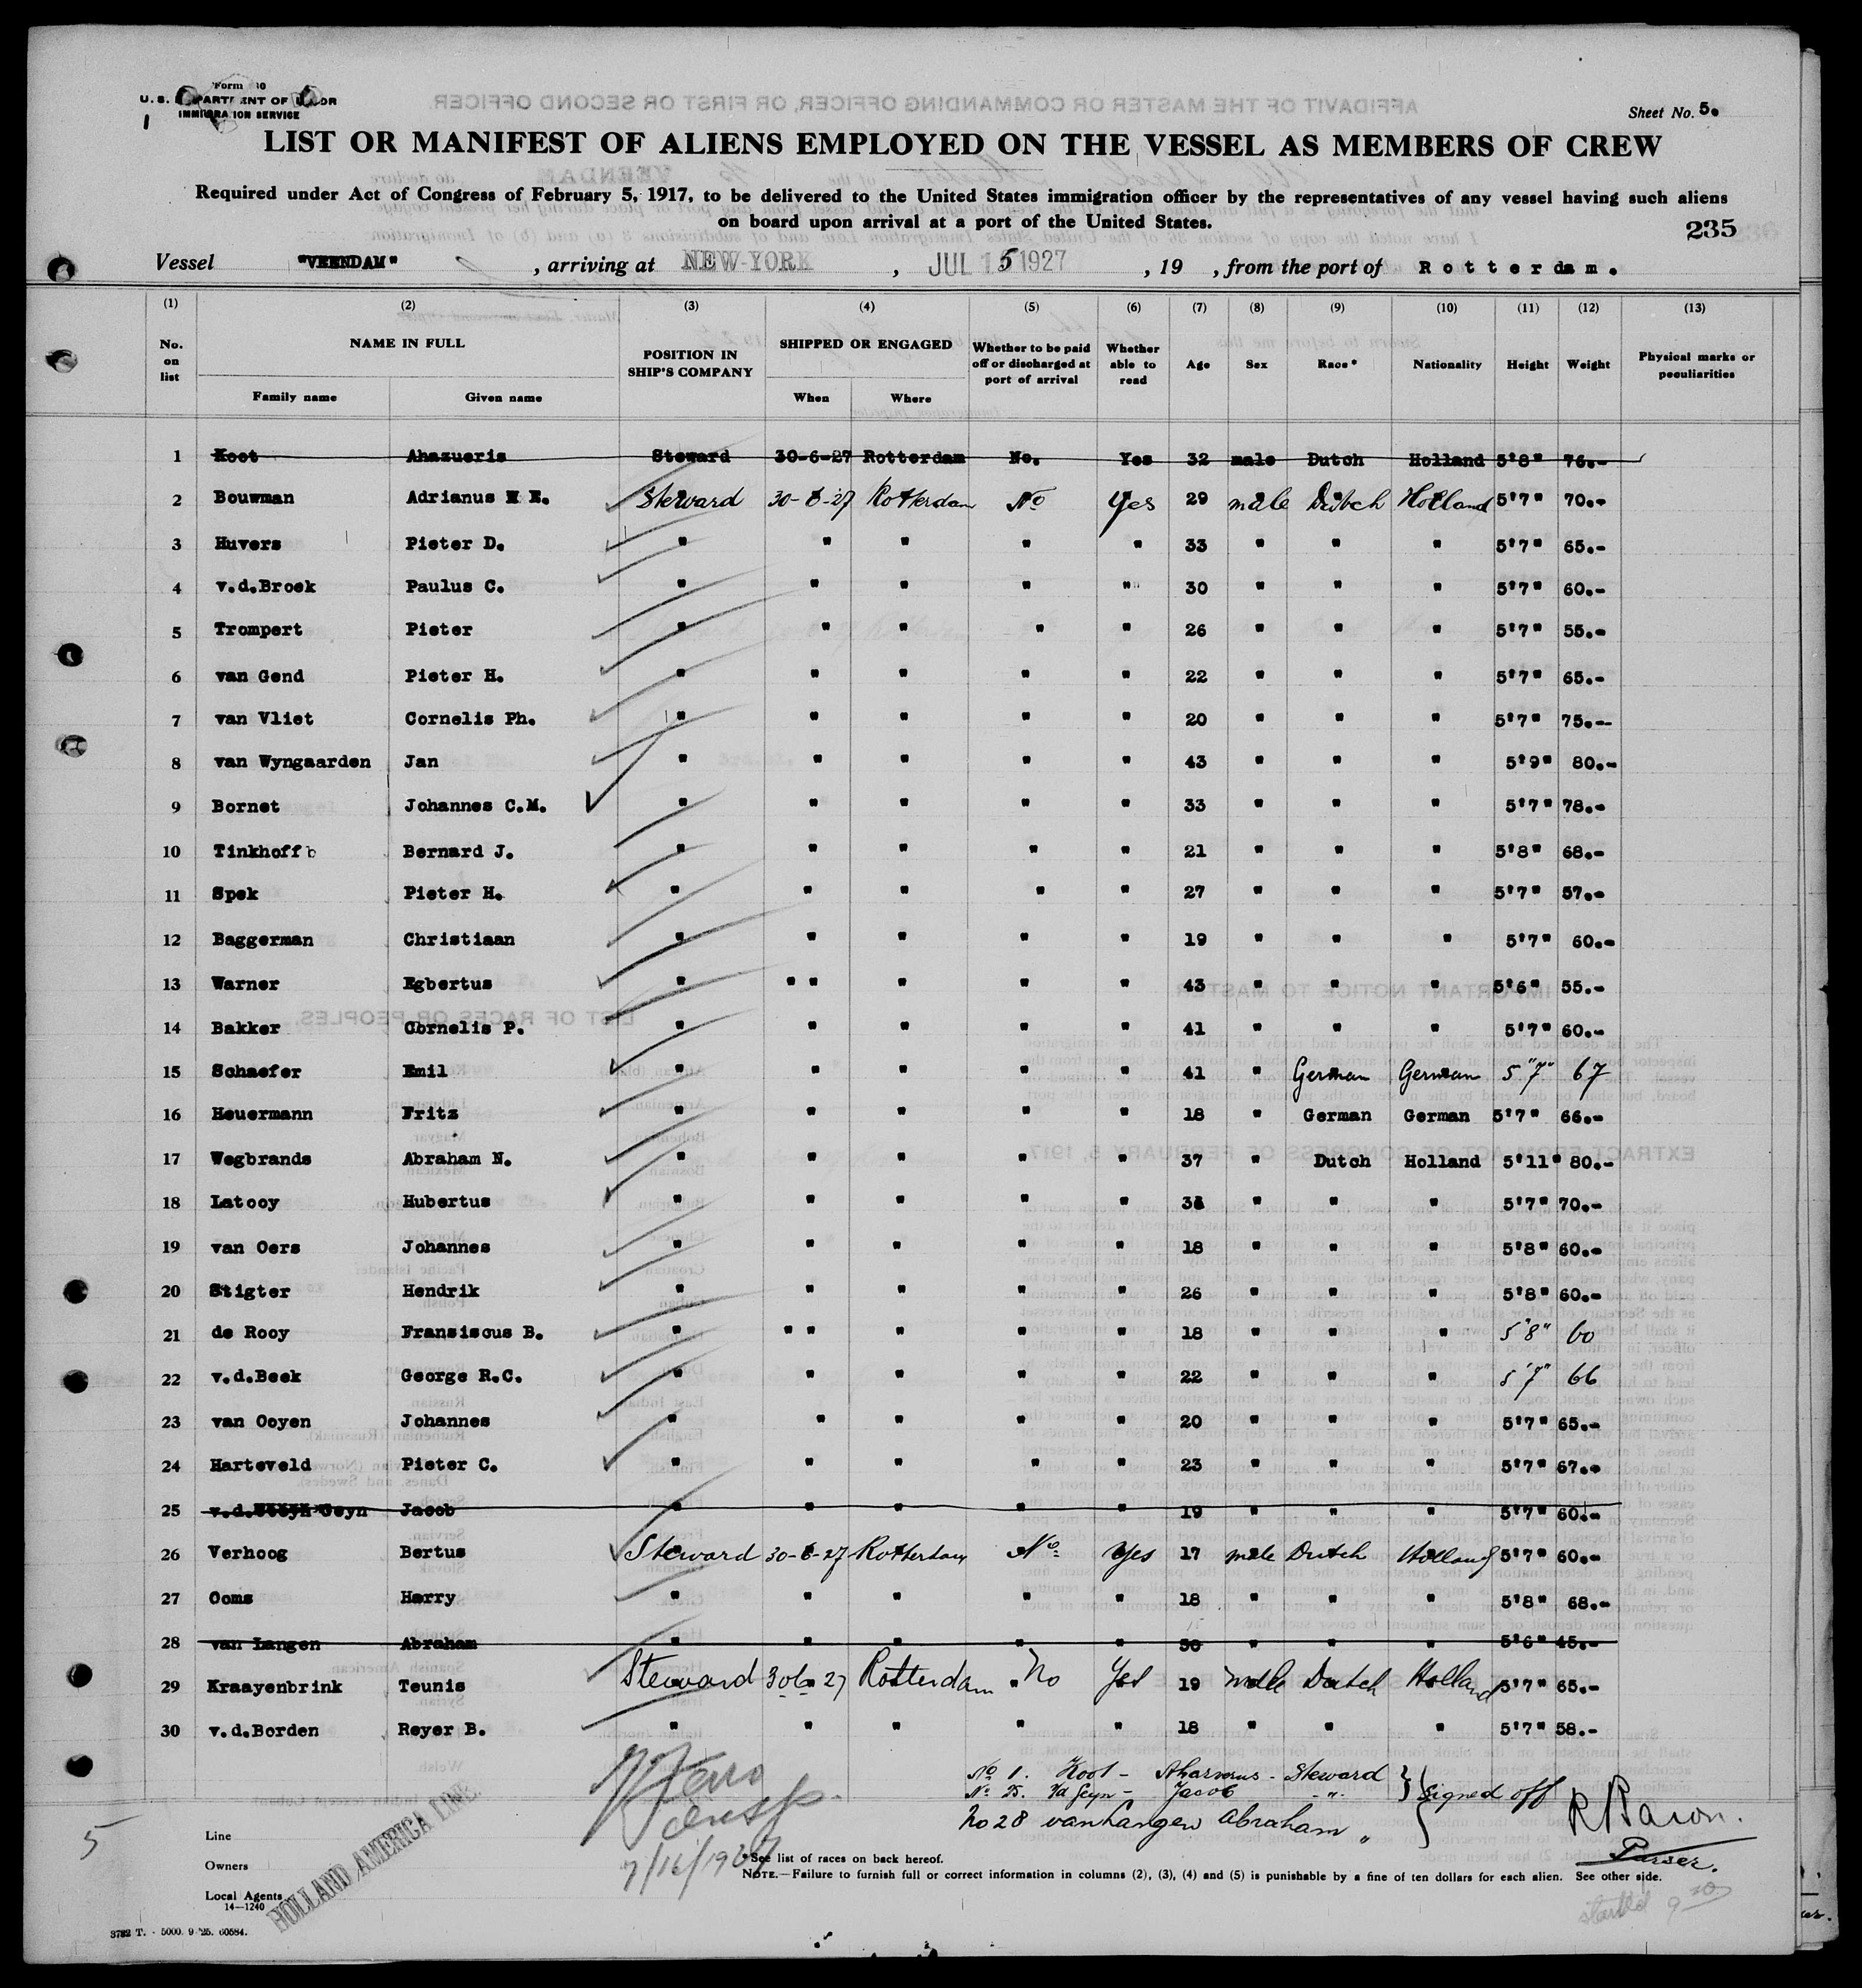 Form
U. S. DEPARTMENT OF LABOR
IMMIGRATION SERVICE
Sheet No. 5.
LIST OR MANIFEST OF ALIENS EMPLOYED ON THE VESSEL AS MEMBERS OF CREW
Required under Act of Congress of February 5, 1917, to be delivered to the United States immigration officer by the representatives of any vessel having such aliens
on board upon arrival at a port of the United States.
235
Vessel "VEENDAM" , arriving at NEW-YORK , JUL 15 1927 , 19 , from the port of Rotterdam.
(1) (2) (3) (4) (5) (6) (7) (8) (9) (10) (11) (12) (13)
No. on list NAME IN FULL Family name Given name POSITION IN SHIP'S COMPANY SHIPPED OR ENGAGED When Where Whether to be paid off or discharged at port of arrival Whether able to read Age Sex Race* Nationality Height Weight Physical marks or peculiarities
1 Koot Ahazueris Steward 30-6-27 Rotterdam No. Yes 32 male Dutch Holland 5'8" 76.-
2 Bouwman Adrianus M E. Steward 30-6-27 Rotterdam No Yes 29 male Dutch Holland 5'7" 70.-
3 Huvers Pieter D. " " " " " 33 " " " 5'7" 65.-
4 v.d.Broek Paulus C. " " " " " 30 " " " 5'7" 60.-
5 Trompert Pieter " " " " " 26 " " " 5'7" 55.-
6 van Gend Pieter H. " " " " " 22 " " " 5'7" 65.-
7 van Vliet Cornelis Ph. " " " " " 20 " " " 5'7" 75.--
8 van Wyngaarden Jan " " " " " 43 " " " 5'9" 80.-
9 Bornet Johannes C.M. " " " " " 33 " " " 5'7" 78.-
10 Tinkhoff b Bernard J. " " " " " 21 " " " 5'8" 68.-
11 Spek Pieter H. " " " " " 27 " " " 5'7" 57.-
12 Baggerman Christiaan " " " " " 19 " " " 5'7" 60.-
13 Warner Egbertus " " " " " " 43 " " " 5'6" 55.-
14 Bakker Cornelis P. " " " " " 41 " " " 5'7" 60.-
15 Schaefer Emil " " " " " 41 " German German 5"7" 67
16 Heuermann Fritz " " " " " 18 " German German 5'7" 66.-
17 Wegbrands Abraham N. " " " " " 37 " Dutch Holland 5'11" 80.-
18 Latooy Hubertus " " " " " " " " 5'7" 70.-
19 van Oers Johannes " " " " " 18 " " " 5'8" 60.-
20 Stigter Hendrik " " " " " 26 " " " 5'8" 60.-
21 de Rooy Fransiscus B. " " " " " " 18 " " " 5"8" 60
22 v.d.Beek George R.C. " " " " " 22 " " " 5'7" 66
23 van Ooyen Johannes " " " " " 20 " " " 5'7" 65.-
24 Harteveld Pieter C. " " " " " 23 " " " 5'7" 67.-
25 v.d. Geyn Jacob " " " " " 19 " " " 5'7" 60.-
26 Verhoog Bertus Steward 30-6-27 Rotterdam No. Yes 17 male Dutch Holland 5'7" 60.-
27 Ooms Harry " " " " " 18 " " " 5'8" 68.-
28 van Langen Abraham " " " " " 30 " " " 5'6" 45.-
29 Kraayenbrink Teunis Steward 30 6 27 Rotterdam No Yes 19 male Dutch Holland 5'7" 65.-
30 v.d.Borden Reyer B. " " " " " 18 " " " 5'7" 58.-
No 1. Koot - Ahasverus - Steward
No. 25. vd Geyn - Jacob - ".
No 28 van Langen Abraham "
Signed off
R Baron.
Purser.
7/16/1927
5
Line
Owners
Local Agents
HOLLAND AMERICA LINE.
14—1240
* See list of races on back hereof.
NOTE.—Failure to furnish full or correct information in columns (2), (3), (4) and (5) is punishable by a fine of ten dollars for each alien. See other side.
3782 T. - 5000. 9 '25. 60584.
started 9 30